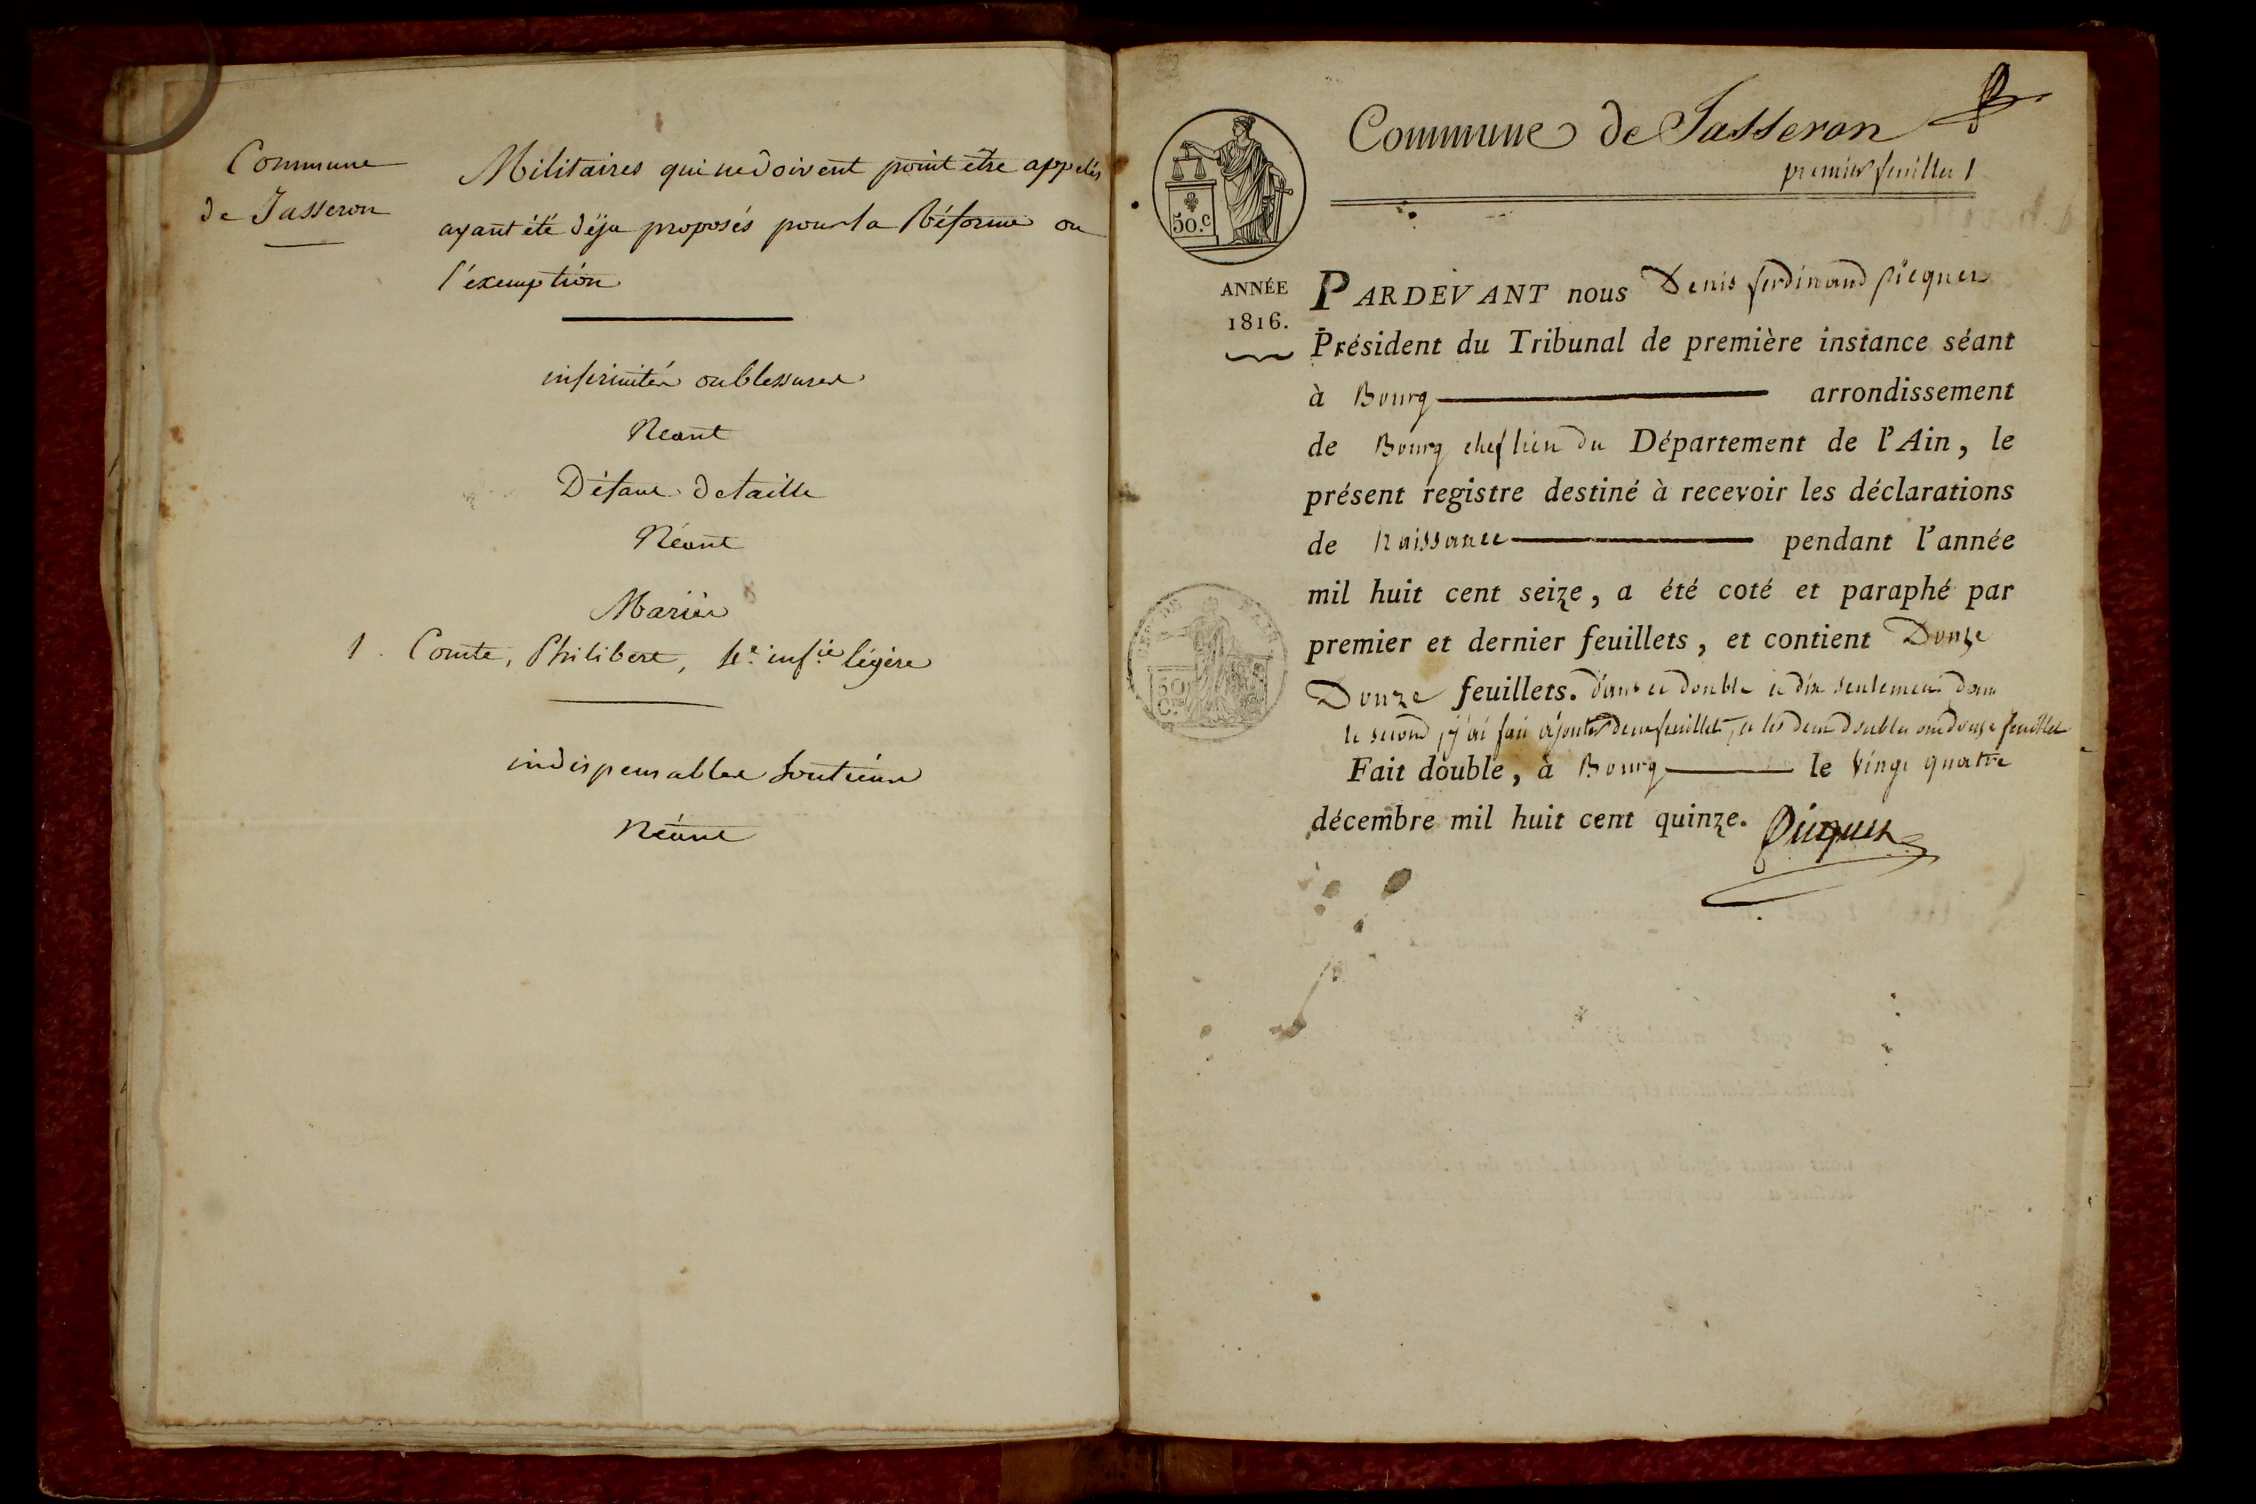 Commune
de Jasseron
Militaires qui ne doivent point être appelés
ayant été déja proposés pour la Réforme ou
l'éxemption
infirmités ou blessures
Neant
Défaut de taille
Néant
Mariés
1. Comte, Philibert, 4e. infie légère
indispensables soutiens
Néant
Commune de Jasseron
premier feuillet 1
50.c
ANNÉE
1816.
PARDEVANT nous Denis ferdinand picquet
Président du Tribunal de première instance séant
à Bourg arrondissement
de Bourg chef lieu du Département de l'Ain, le
présent registre destiné à recevoir les déclarations
de Naissance pendant l'année
mil huit cent seize, a été coté et paraphé par
premier et dernier feuillets, et contient Douze
Douze feuillets. dans ce double et dix seulement dans
le second, j'y ai fait ajouter deux feuillets, et les deux doubles ont douze feuillets
Fait double, à Bourg le vingt quatre
décembre mil huit cent quinze. Picquet
50
C.